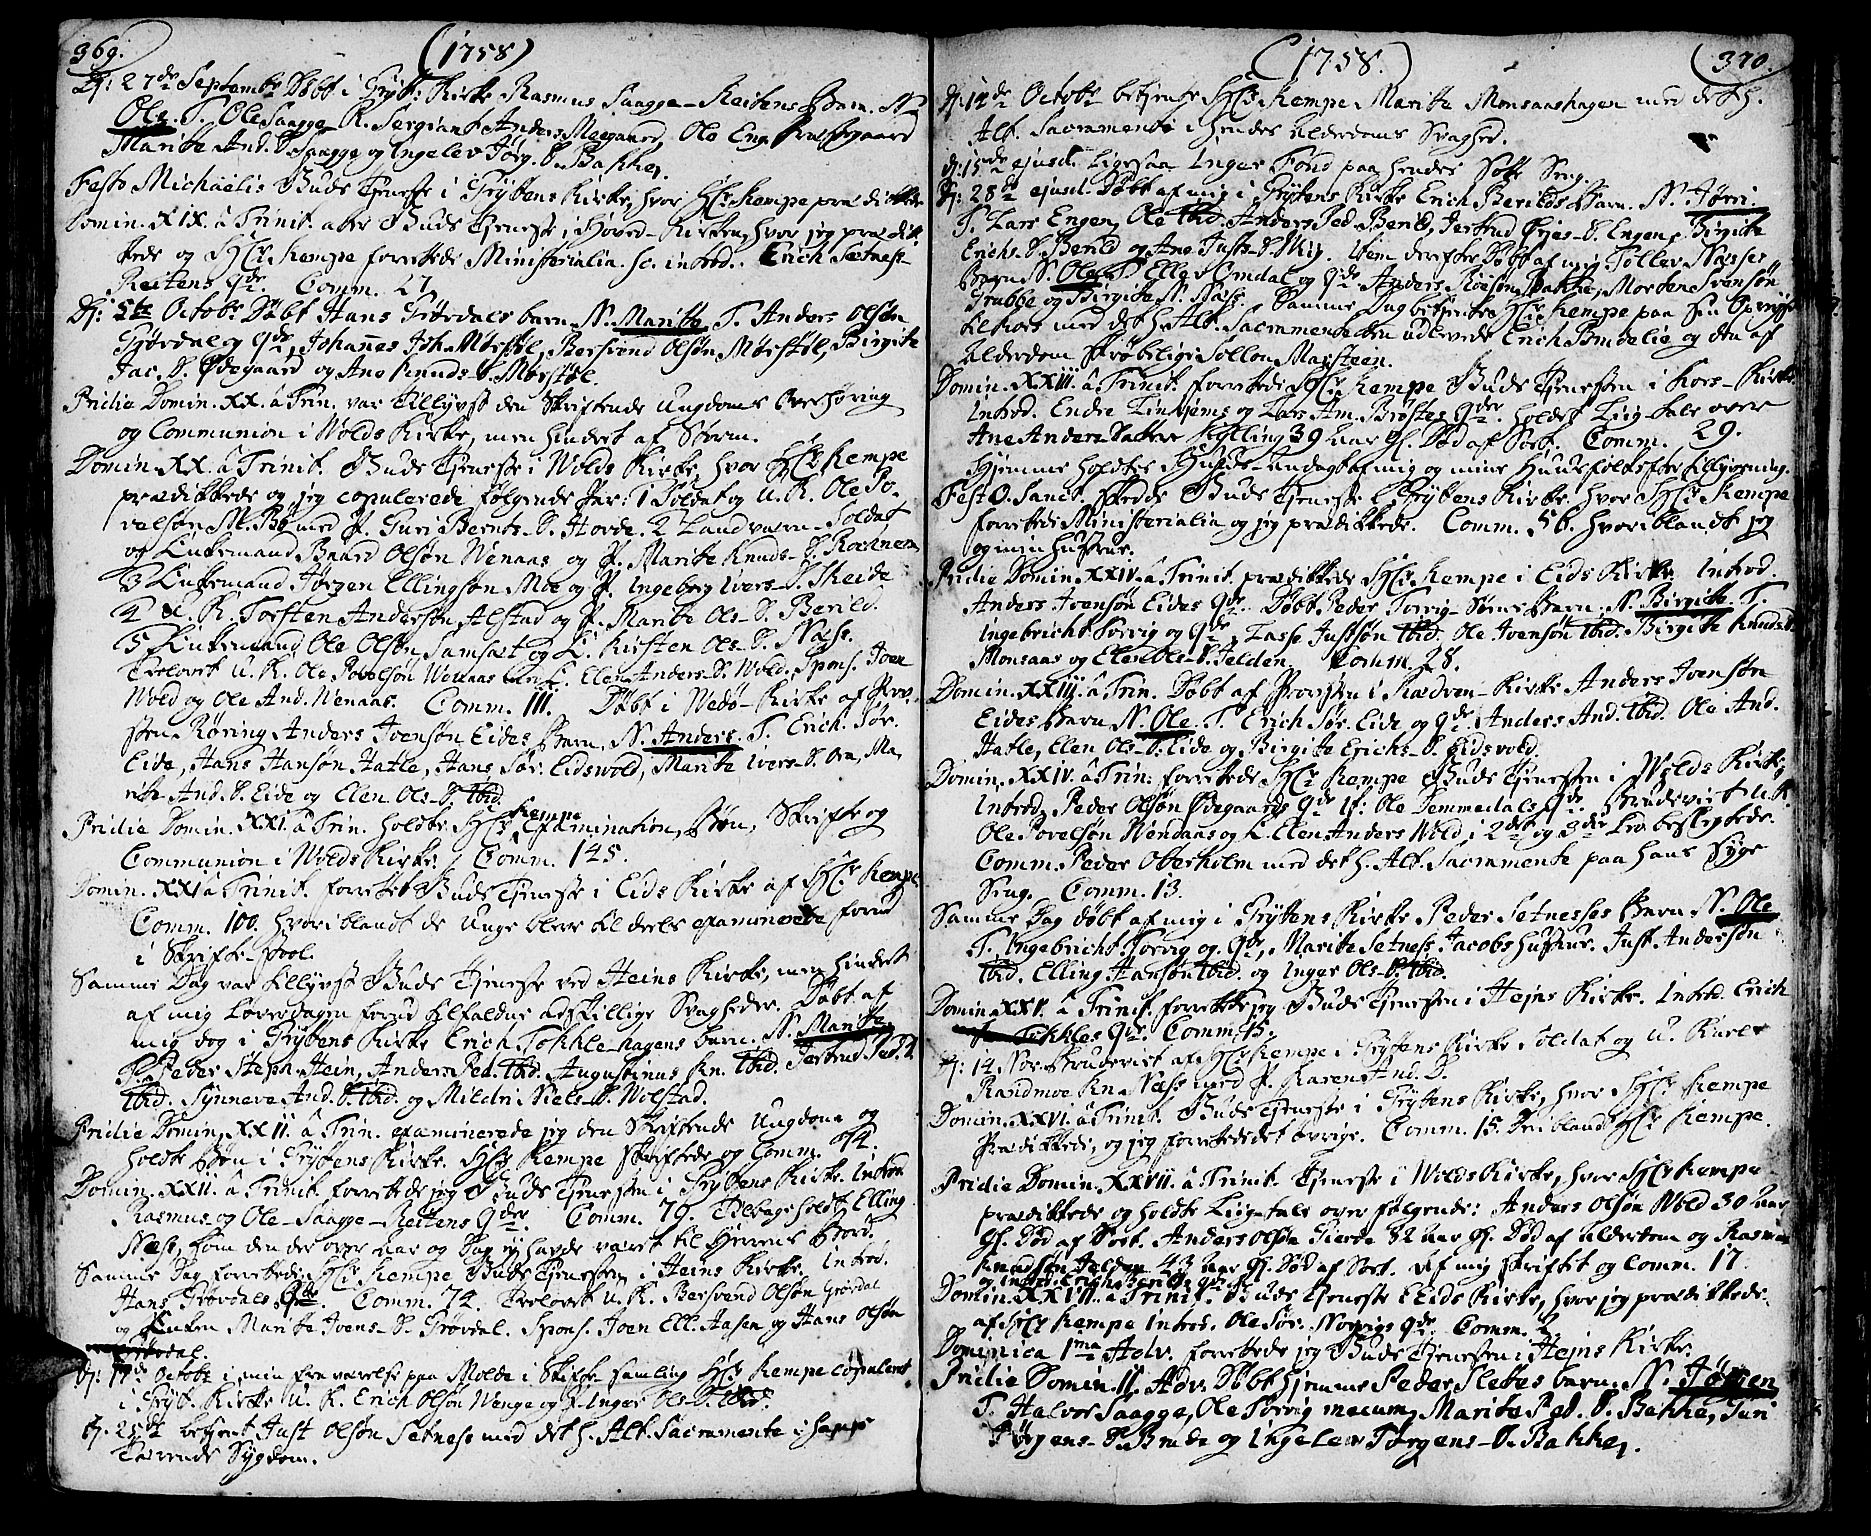 369.
(1758)
Dj: 27de Septembr Døbt i Grytt: Kirke Rasmus Saagge-Reitens Barn. N.
Ole. T. Ole Saagge-R. Sergiant Anders Meegaard, Ole Eng.
Marite And. D. Saagge og Ingelev Jørg. D. Bakke.
Festo Michaëlis Guds Tjeneste i Gryttens Kirke, hvor Hr Kempe prædikkede
Domin. XIX. à Trinit. atter Guds Tjeneste i Hoved-Kirken, hvor jeg prædik-
kede og Hr Kempe forrettede Ministerialia. sc. introd. Erich Sætnes-
Reitens Qde. Comm. 27
Dj: 5te Octobr Døbt Hans Grøvdals barn N. Marite T. Anders Olsøn
Grøvdal og Qde, Johannes Joh. Morstøl, Bersvend Olsøn Morstøl, Birgite
Jac. D. Ødegaard og Ane Knuds-D. Morstøl.
Pridie Domin. XX. à Trin. var Tillyvst den Skriftende Ungdoms Overhøring
og Communion i Wolds Kirke, men hindret af Storm.
Domin. XX. à Trinit. Guds Tjeneste i Wolds Kirke, hvor Hr Kempe
prædikkede og jeg copulerede følgende Par: 1 Soldat og U. K. Ole Po-
velsøn M. Bø med P. Guri Bernts-D. Horde. 2 Landværn-Soldat
og Enkemand Baard Olsøn Wenaas og P. Marite Knuds-D. Roesnem
3 Enkemand Jørgen Ellingsøn Moe og P. Ingeborg Ivers-D. Skeide
4 U. K. Torsten Andersøn Alstad og P. Marite Ols-D. Berild.
5 Enkemand Ole Olsøn Samset og E. Kirsten Ols-D. Næss.
Trolovet U. K. Ole Povelsøn Wenaas med E. Elen Anders-D. Wold. Spons. Joen
Wold og Ole And. Wenaas. Comm. 111. Døbt i Wedø-Kirke af Prov-
sten Røring Anders Ivensøn Eides Barn, N. Anders. T. Erich Sør.
Eide, Hans Hansøn Hatle, Hans Sør. Eidsvold, Marite Ivers-D. Ora, Ma-
rite And. D. Eide og Elen Ols-D. Ibid.
Pridie Domin. XXI. à Trin. holdte Hr Kempe Examination, Bøn, Skrifte og
Communion i Wolds Kirke. Comm. 145.
Domin. XXI à Trinit. forrettet Guds Tjeneste i Eids Kirke af Hr Kempe
Comm. 100. hvoriblandt de Unge bleve tildeels examinerede forud
i Skrifte-stol.
Samme Dag var tillyvst Guds Tjeneste ved Heins Kirke, men hindret
af mig Løverdagen forud tilfaldne adskillige Svagheder. Døbt af
mig dog i Gryttens Kirke Erich Tokkle-hagens barn. N. Marite
T. Peder Steph. Hein, Anders Ped. Ibid. Augustinus Kn. Ibid. Jertrud Ped. D.
Ibid. Synneve And. D. Ibid. og Mildri Niels-D. Wolstad.
Pridie Domin. XXII. à Trin. examinerede jeg den Skriftende Ungdom og
holdte Bøn i Gryttens Kirke. Hr Kempe skriftede og Comm. 74.
Domin. XXII. à Trinit. forrettede jeg Guds Tjenesten i Gryttens Kirke. Introd.
Rasmus og Ole-Saagge-Reitens Qder. Comm. 79. Tilbageholdt Elling
Næss, som den der over Aar og Dag ey havde været til Herrens Bord.
Samme Dag forrettede Hr Kempe Guds Tjenesten i Heins Kirke. Introd.
Hans Grøvdals Qde. Comm. 74. Trolovet U. K. Bersvend Olsøn Grøvdal
og Enken Marite Joens-D. Grøvdal. Spons. Joen Ell. Aasen og Hans Olsøn
Grøvdal.
Dj: 17de Octobr i min fraværelse paa Molde i Skifte samling Hr Kempe copuleret
i Grytt. Kirke U. K. Erich Olsøn Wenge og P. Inger Ols-D. Ibid.
Dj. 25de betient Just Olsøn Sætnes med det h. Alt. Sacramente i hans
Tærende Sygdom.
370.
(1758.)
Dj: 14de Octobr betjente Hr Kempe Marite Monsaashagen med det h.
Alt. Sacramente i hendes Alderdoms Svaghed.
Dj: 15de ejusd. Ligesaa Inger Fond paa hendes Sotte Seng.
Dj: 28de ejusd. Døbt af mig i Gryttens Kirke Erich Berilds Barn. N. Jøri.
T. Lars Engen, Ole Ibid. Anders Ped. Berild, Jertrud Øyes-D. Engen, Birgite
Erichs-D. Berild og Ane Justs-D. Skiy. Item derefter Døbt af mig Tollev Næsses
Barn. N. Ole. T. Ellev Omdal og Qde Anders Roesøn Bakke, Morten Svensøn
Grubbe og Birgite N. Næss. Samme Dag betjentes Hr Kempe paa sin Opreise
til Kors med det h. Alt. Sacramente den udlevede Erich Bondelie og den af
Alderdom skrøbelige Sollou Marsteen.
Domin. XXIII. à Trinit. forrettede Hr Kempe Guds Tjenesten i Kors-Kirke
Introd. Endre Linhjems og Lars Am. Brøstes Qder. holdt Liig-tale over
Ane Anders Datter Kylling 39 aar gl. Død af Sot. Comm. 29.
Hjemme holdtes Huuds-Andagt af mig og mine Huusfolk efter tillysning.
Fest. O. Sanct. skedde Guds Tjeneste i Gryttens Kirke, hvor Hr Kempe
forrettede Ministerialia og jeg prædikkede. Comm. 56. hvoriblandt jeg
og min hustrue.
Pridie Domin. XXIV. à Trinit. prædikkede Hr Kempe i Eids Kirke. Introd.
Anders Ivensøn Eides Qde. Døbt Peder Torvig-Sørns Barn. N. Birgite. T.
Ingebricht Torvig og Qde, Lasse Justsøn Ibid. Ole Ivensøn Ibid. Birgite Knuds D.
Monsaas og Elen Ols-D. Jelden. Comm. 28.
Domin. XXIII. à Trin. Døbt af Provsten i Rødven-Kirke Anders Ivensøn
Eides Barn N. Ole. T. Erich Sør. Eide og Qde, Anders And. Ibid. Ole And.
Hatle, Elen Ols-D. Eide og Birgite Erichs-D. Eidsvold.
Domin. XXIV. à Trin: forrettede Hr Kempe Guds Tjenesten i Wolds Kirke
Introd. Peder Olsøn Ødegaards Qde. It: Ole Demmedals Qde. Brudeviet U. K.
Ole Povelsøn Wendaas og E. Elen Anders Wold i 2det og 3die Led beslegtede.
Comm. Peder Otterholm med det h. Alt. Sacramente paa hans Syge
Seng. Comm. 13.
Samme Dag døbt af mig i Gryttens Kirke Peder Sætnesses Barn N. Ole
T. Ingebricht Torvig og Qde, Marite Sætness Jacobs hustrue. Just Andersøn
Ibid. Elling Hansøn Ibid. og Inger Ols-D. Ibid.
Domin. XXV. à Trinit. forrettede jeg Guds Tjenesten i Hejns Kirke. Introd. Erich
Tokkles Qde. Comm. 15.
Dj: 14 Nov. Brudeviet af Hr Kempe i Gryttens Kirke Soldat og U. Karl
Randmoe Kn. Næss med P. Karen And. D.
Domin. XXVI. à Trinit. Guds Tjeneste i Gryttens Kirke, hvor Hr Kempe
Prædikkede, og jeg forrettede det øvrige. Comm. 15. Deriblandt Hr Kempe.
Pridie Domin. XXVII. à Trinit. Tjeneste i Wolds Kirke, hvor Hr Kempe
prædikkede og holdte Liig-tale over følgende: Anders Olsøn Wold 30 aar
gl. Død af Sot. Anders Olsøn Gierde 82 aar gl. Død af Alderdom og Rasmus
Knudsøn Jelden 43 aar gl. Død af Sot. Af mig skriftet og Comm. 17.
og introd. Erich Berilds Qde.
Domin. XXVII. à Trinit. Guds Tjeneste i Eids Kirke, hvor jeg prædikkede.
af Hr Kempe Introd. Ole Sør. Norvigs Qde. Comm. 7
Dominica 1ma Adv. forrettede jeg Guds Tjenesten i Hejns Kirke.
Pridie Domin. II. Adv. Døbt hjemme Peder Sletes barn. N. Jørgen
T. Halvor Saagge, Ole Torvig mecum, Marite Ped. D. Bakke, Guri
Jørgens-D. Brude og Ingelev Jørgens-D. Bakke.